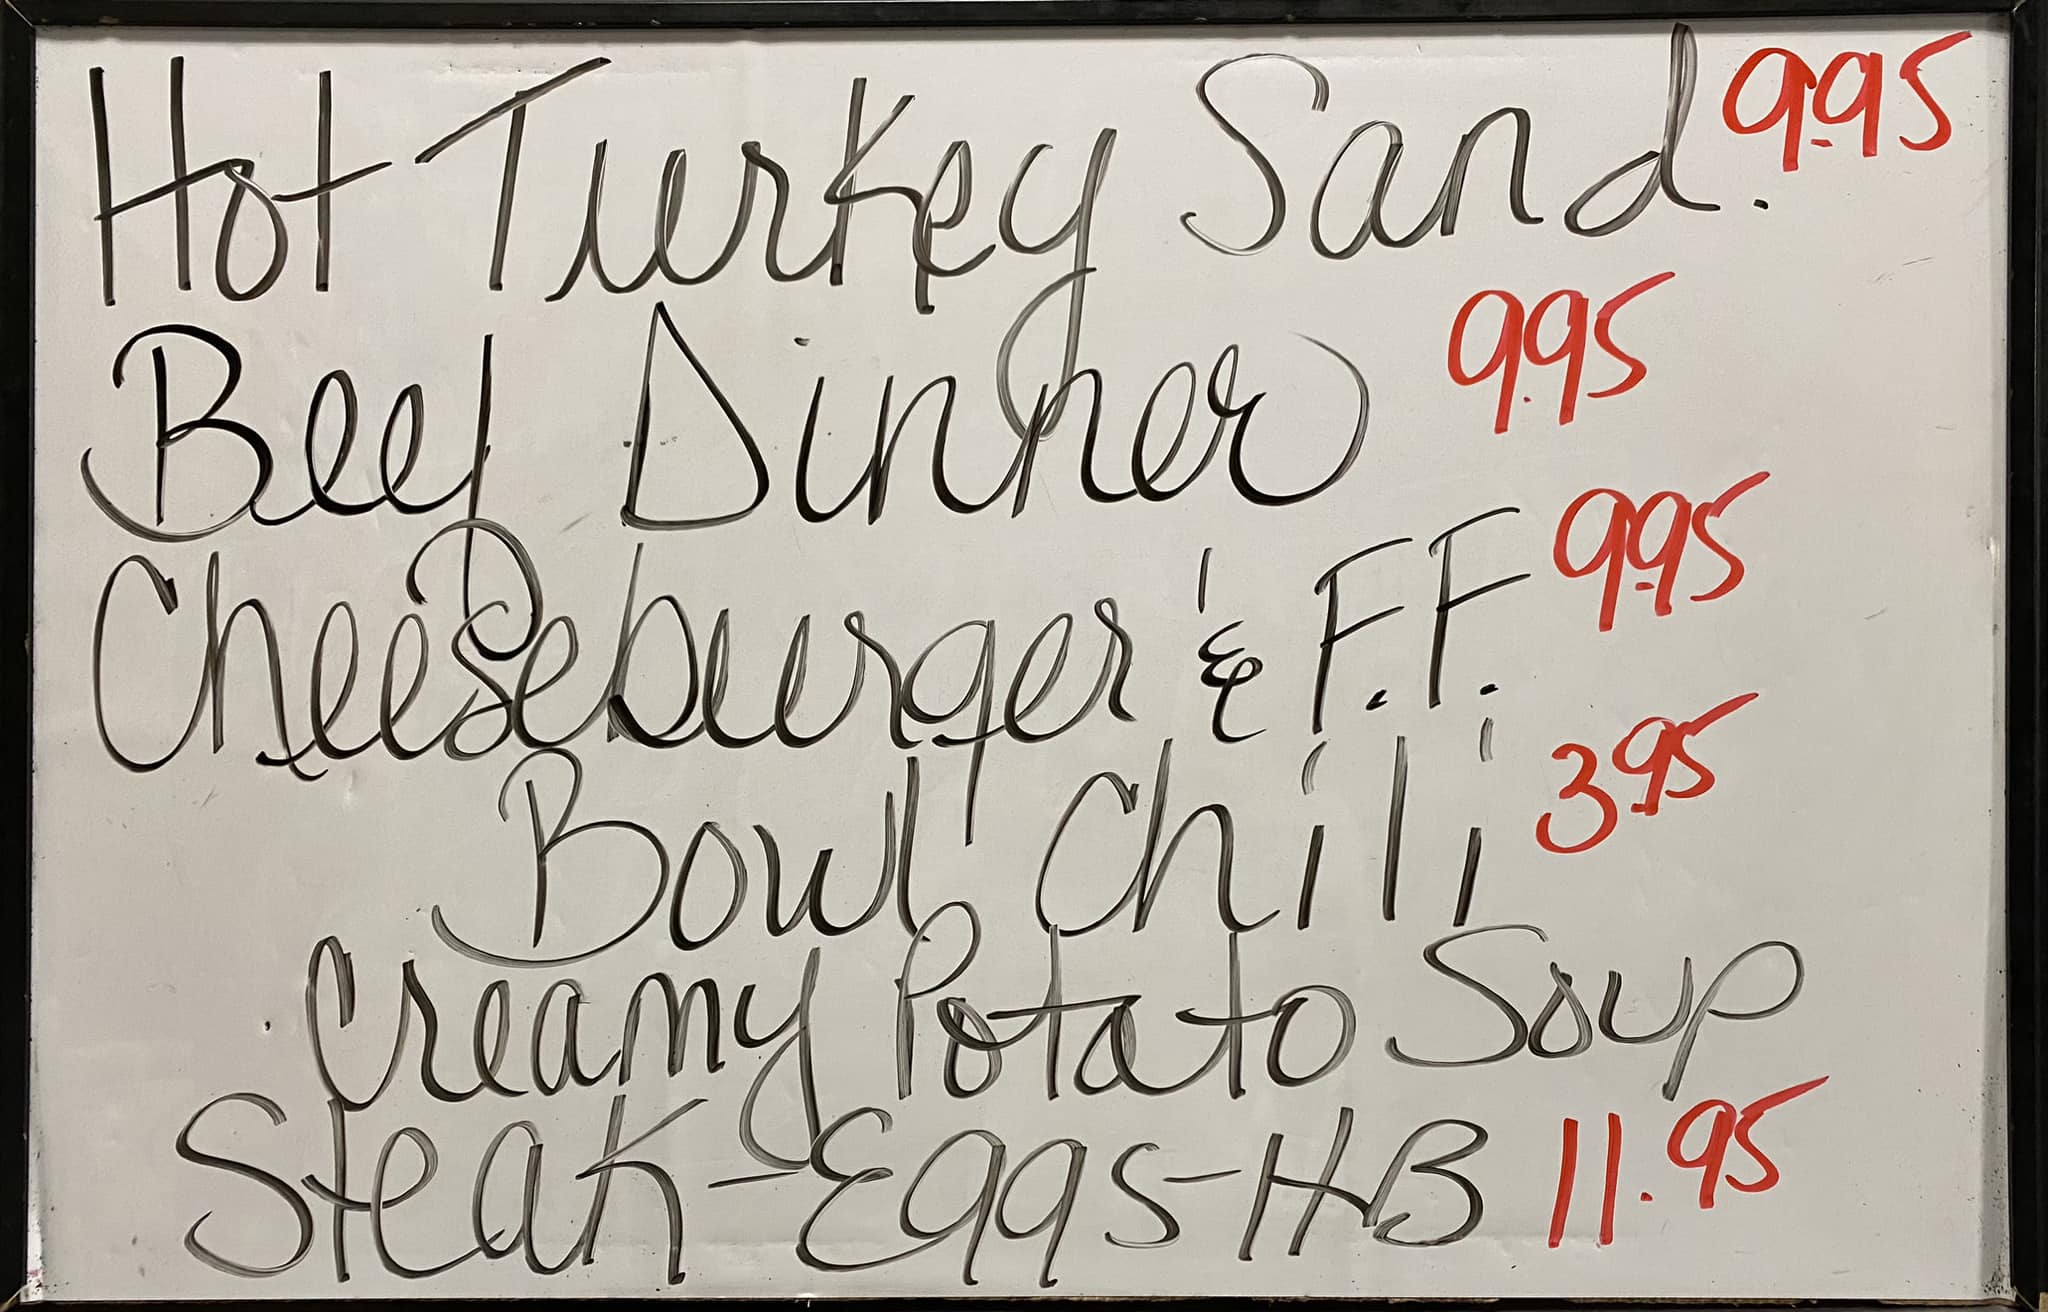 Hot Turkey Sand. 9.95
Beef Dinner 9.95
Cheeseburger & F.F. 9.95
Bowl Chili 3.95
Creamy Potato Soup
Steak-Eggs-HB 11.95